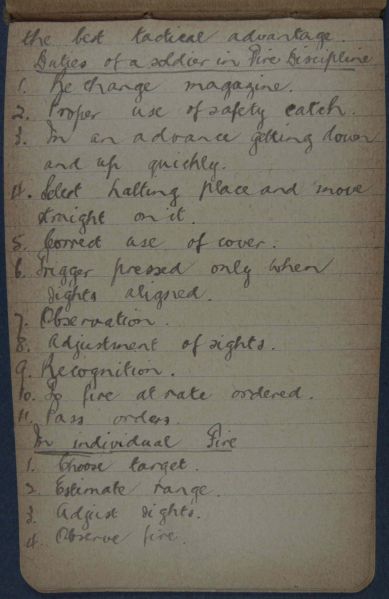 the best tactical advantage.
Duties of a soldier in Fire Discipline
1. Re change magazine.
2. Proper use of safety catch.
3. In an advance getting down
and up quickly.
4. Select halting place and move
straight on it.
5. Correct use of cover.
6. Trigger pressed only when
sights aligned.
7. Observation.
8. Adjustment of sights.
9. Recognition.
10. To fire at rate ordered.
11. Pass orders.
In individual Fire
1. Choose target.
2. Estimate range.
3. Adjust sights.
4. Observe fire.